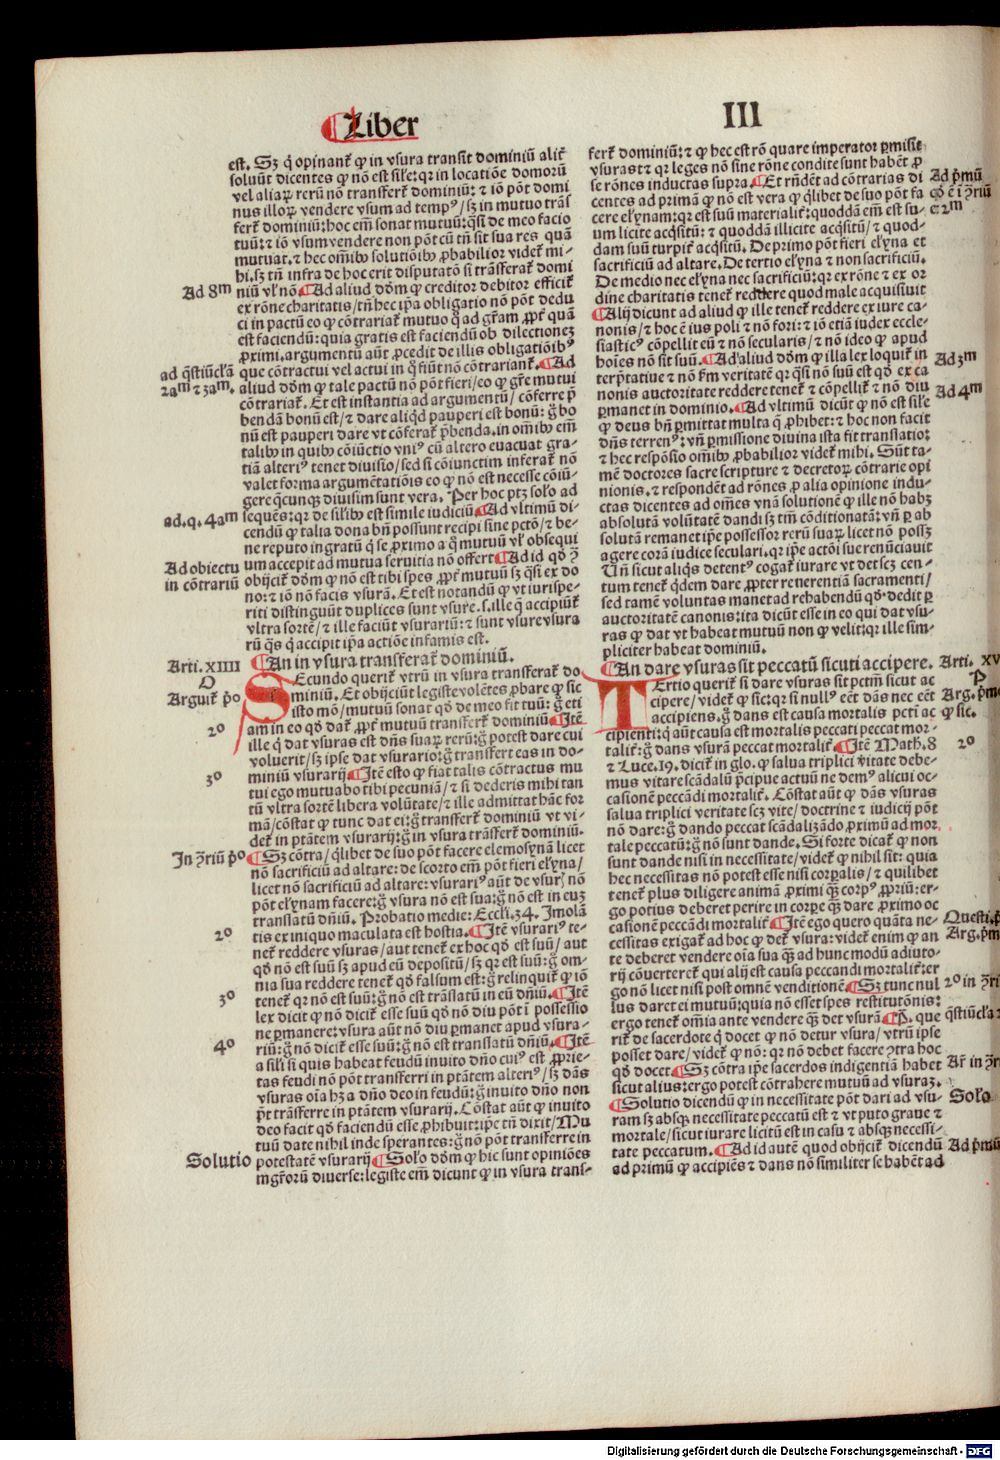 Liber
III
est. Sꝫ q̇ opinant᷑ ꝙ in vsura transit dominiū alit᷑
soluūt dicentes ꝙ nō est sil̄e: qꝛ in locatiōe domorū
vel aliaꝝ rerū nō transfert᷑ dominiū: ⁊ iō pōt domi
nus illoꝝ vendere vsum ad tempꝰ/ sꝫ in mutuo trās
fert᷑ dominiū: hoc em̄ sonat mutuū: qͣsi de meo facio
tuū: ⁊ iō vsum vendere non pōt cū tn̄ sit sua res quā
mutuat. ⁊ hec om̄ibꝰ solutiōibꝰ ꝓbabilior videt᷑ mi-
hi. sꝫ tn̄ infra de hoc erit disputatō si trāsferat᷑ domi
Ad 8m
niū vl̓ nō ¶Ad aliud dd̓m ꝙ creditor debitor efficit᷑
ex rōne charitatis/ tn̄ hec ip̄a obligatio nō pōt dedu
ci in pactū eo ꝙ cōtrariat᷑ mutuo q̄ ad gr̄am ꝓpt᷑ quā
est faciendū: quia gratis est faciendū ob dilectionez
ꝓximi. argumentū aūt ꝓcedit de illis obligatiōibꝰ
ad q̄stiūcl̄ā
que cōtractui vel actui in q̄ fiūt nō cōtrariant᷑. ¶Ad
2am ⁊ 3am.
aliud dd̓m ꝙ tale pactū nō pōt fieri/ eo ꝙ gr̄e mutui
cōtrariat᷑. Et est instantia ad argumentū/ cōferre p̄
bendā bonū est/ ⁊ dare aliqd̓ pauperi est bonū: g̊ bo
nū est pauperi dare vt cōferat᷑ p̄benda. in om̄ibꝰ em̄
talibꝰ in quibꝰ cōiūctio vniꝰ cū altero euacuat gra-
tiā alteriꝰ tenet diuisio/ sed si cōiunctim inferat᷑ nō
valet forma argumētatiōis eo ꝙ nō est necesse cōiū-
gere q̄cunqꝫ diuisim sunt vera. Per hoc ptꝫ sol̓o ad
ad. q. 4am
sequēs: qꝛ de sil̄ibꝰ est simile iudiciū ¶Ad vltimū di-
cendū ꝙ talia dona bn̄ possunt recipi sine pctō/ ⁊ be-
ne reputo ingratū q̇ se ꝓximo a q̊ mutuū vl̓ obsequi
Ad obiectu
um accepit ad mutua seruitia nō offert ¶Ad id qd̓ ꝯ
in cōtrariū
obijcit᷑ dd̓m ꝙ nō est tibi spes ꝓpt᷑ mutuū sꝫ qͣsi ex do
no: ⁊ iō nō facis vsurā. Et est notandū ꝙ vt iurispe-
riti distinguūt duplices sunt vsure. s. ille q̄ accipiūt᷑
vltra sortē/ ⁊ ille faciūt vsurariū: ⁊ sunt vsure vsura
rū q̄s q̇ accipit ip̄a actiōe infamis est.
Arti. XIIII
¶An in vsura transferat᷑ dominiū.
SEcundo querit᷑ vtrū in vsura transferat᷑ do
Arguit᷑ p̊o
minium. Et obijciūt legiste volētes ꝓbare ꝙ sic
isto mō/ mutuū sonat qd̓ de meo fit tuū: g̊ eti
am in eo qd̓ dat᷑ ꝓpt᷑ mutuū transfert᷑ dominiū ¶Itē
2o
ille q̇ dat vsuras est dn̄s suaꝝ rerū: g̊ potest dare cui
voluerit/ sꝫ ipse dat vsurario: g̊ transfert eas in do-
3o
miniū vsurarij ¶Itē esto ꝙ fiat talis cōtractus mu
tui ego mutuabo tibi pecuniā/ ⁊ si dederis mihi tan
tū vltra sortē libera volūtate/ ⁊ ille admittat hāc for
mā/ cōstat ꝙ tunc dat ei: g̊ transfert᷑ dominiū vt vi-
det᷑ in ptātem vsurarij: g̊ in vsura trāsfert᷑ dominiū.
In ꝯriū p̊o
¶Sꝫ cōtra/ q̇libet de suo pōt facere elemosynā licet
nō sacrificiū ad altare: de scorto em̄ pōt fieri el̓yna/
licet nō sacrificiū ad altare: vsurariꝰ aūt de vsurꝫ nō
pōt el̓ynam facere: g̊ vsura nō est sua: g̊ nō est in euꝫ
translatū dn̄iū. Probatio medie: Eccl̓i. 34. Jmolā
2o
tis ex iniquo maculata est hostia. ¶Itē vsurariꝰ te-
net᷑ reddere vsuras/ aut tenet᷑ ex hoc qd̓ est suū/ aut
qd̓ nō est suū sꝫ apud eū depositū/ sꝫ qꝛ est suū: g̊ om-
nia sua reddere tenet᷑ qd̓ falsum est: g̊ relinquit᷑ ꝙ iō
3o
tenet᷑ qꝛ nō est suū: g̊ nō est trāslatū in eū dn̄iū. ¶Itē
lex dicit ꝙ nō dicit᷑ esse suū qd̓ nō diu pōt ī possessio
ne ꝑmanere: vsura aūt nō diu ꝑmanet apud vsura-
4o
riū: g̊ nō dicit᷑ esse suū: g̊ nō est translatū dn̄iū. ¶Itē
a sili si quis habeat feudū inuito dn̄o cuiꝰ est ꝓprie-
tas feudi nō pōt transferri in ptātem alteriꝰ/ sꝫ dās
vsuras oīa hꝫ a dn̄o deo in feudū: g̊ inuito dn̄o non
pt̄ trāsferre in ptātem vsurarij. Cōstat aūt ꝙ inuito
deo facit qd̓ faciendū esse ꝓhibuit: ip̄e tn̄ dixit/ Mu
tuū date nihil inde sperantes: g̊ nō pōt transferre in
Solutio
potestatē vsurarij ¶Sol̓o dd̓m ꝙ hic sunt opiniōes
mg̓rōrū diuerse: legiste em̄ dicunt ꝙ in vsura trans-
fert᷑ dominiū: ⁊ ꝙ hec est rō quare imperator ꝑmisit
vsuras: ⁊ qꝛ leges nō sine rōne condite sunt habēt ꝓ
Ad p̄mū
se rōnes inductas supra. ¶Et rn̄dēt ad cōtrarias di
qd̓ ē ī ꝯriū
centes ad primā ꝙ nō est vera ꝙ q̇libet de suo pōt fa
⁊ 2m
cere el̓ynam: qꝛ est suū materialit᷑: quoddā em̄ est su-
um licite acq̇sitū: ⁊ quoddā illicite acq̇sitū/ ⁊ quod-
dam suū turpit᷑ acq̇sitū. De primo pōt fieri el̓yna et
sacrificiū ad altare. De tertio el̓yna ⁊ non sacrificiū.
De medio nec el̓yna nec sacrificiū: qꝛ ex rōne ⁊ ex or
dine charitatis tenet᷑ reddere quod male acquisiuit
¶Alij dicunt ad aliud ꝙ ille tenet᷑ reddere ex iure ca-
nonis/ ⁊ hoc ē ius poli ⁊ nō fori: ⁊ iō etiā iudex eccle-
siasticꝰ cōpellit eū ⁊ nō secularis/ ⁊ nō ideo ꝙ apud
Ad 3m
hoīes nō sit suū. ¶Ad aliud dd̓m ꝙ illa lex loquit᷑ in
terp̄tatiue ⁊ nō fm̄ veritatē qꝛ qͣsi nō suū est qd̓ ex ca
Ad 4m
nonis auctoritate reddere tenet᷑ ⁊ cōpellit᷑ ⁊ nō diu
ꝑmanet in dominio. ¶Ad vltimū dicūt ꝙ nō est sil̄e
ꝙ deus bn̄ ꝑmittat multa q̄ ꝓhibet: ⁊ hoc non facit
dn̄s terrenꝰ: vn̄ ꝑmissione diuina ista fit translatio:
⁊ hec respōsio om̄ibꝰ ꝓbabilior videt᷑ mihi. Sūt ta-
mē doctores sacre scripture ⁊ decretoꝝ cōtrarie opi
nionis. ⁊ respondēt ad rōnes ꝓ alia opinione indu-
ctas dicentes ad om̄es vnā solutionē ꝙ ille nō habꝫ
absolutā volūtatē dandi sꝫ tm̄ cōditionatā: vn̄ ꝑ ab
solutā remanet ip̄e possessor rerū suaꝝ licet nō possꝫ
agere corā iudice seculari. qꝛ ip̄e actōi sue renūciauit
Vn̄ sicut aliq̇s detentꝰ cogat᷑ iurare vt det scꝫ cen-
tum tenet᷑ q̇dem dare ꝓpter reuerentiā sacramenti/
sed tamē voluntas manet ad rehabendū qd̓. dedit ꝑ
auctoritatē canonis: ita dicūt esse in eo qui dat vsu-
ras ꝙ dat vt habeat mutuū non ꝙ velit: qꝛ ille sim-
pliciter habeat dominiū.
¶An dare vsuras sit peccatū sicuti accipere.
Arti. XV
TErtio querit᷑ si dare vsuras sit pctm̄ sicut ac
Arg. p̄mo
cipere/ videt᷑ ꝙ sic: qꝛ si nullꝰ eēt dās nec eēt
ꝙ sic.
accipiens. g̊ dans est causa mortalis pcti ac
cipienti: q̇ aūt causa est mortalis peccati peccat mor-
2o
talit᷑: g̊ dans vsurā peccat mortalit᷑. ¶Itē Math. 8
⁊ Luce. 19. dicit᷑ in glo. ꝙ salua triplici v̓itate debe-
mus vitare scādalū p̄cipue actuū ne demꝰ alicui oc-
casionē peccādi mortalit᷑. Cōstat aūt ꝙ dās vsuras
salua triplici veritate scꝫ vite/ doctrine ⁊ iudicij pōt
nō dare: g̊ dando peccat scādalizādo ꝓximū ad mor
tale peccatū: g̊ nō sunt dande. Si forte dicat᷑ ꝙ non
sunt dande nisi in necessitate/ videt᷑ ꝙ nihil sit: quia
hec necessitas nō potest esse nisi corꝑalis/ ⁊ quilibet
tenet᷑ plus diligere animā ꝓximi qͣꝫ corpꝰ ꝓpriū: er-
go potius deberet perire in corꝑe qͣꝫ dare ꝓximo oc
Questi. p
casionē peccādi mortalit᷑ ¶Itē ego quero quāta ne-
Arg. p̄m
cessitas exigat᷑ ad hoc ꝙ det᷑ vsura: videt᷑ enim ꝙ an
te deberet vendere oīa sua qͣꝫ ad hunc modū adiuto-
rij cōuerteret᷑ qui alij est causa peccandi mortalit᷑: er
2o in ꝯri
go nō licet nisi post omnē venditionē ¶Sꝫ tunc nul
lus daret ei mutuū: quia non esset spes restitutōnis:
q̄stiūcl̄a 2
ergo tenet᷑ om̄ia ante vendere qͣꝫ det vsurā ¶P. que
rit᷑ de sacerdote q̇ docet ꝙ nō detur vsura/ vtrū ipse
posset dare/ videt᷑ ꝙ nō: qꝛ nō debet facere ꝯtra hoc
Ar̄ in ꝯri
qd̓ docet ¶Sꝫ cōtra ip̄e sacerdos indigentiā habet
sicut alius: ergo potest cōtrahere mutuū ad vsuraꝫ.
Sol̓o
¶Solutio dicendū ꝙ in necessitate pōt dari ad vsu-
ram sꝫ absqꝫ necessitate peccatū est ⁊ vt puto graue ⁊
mortale/ sicut iurare licitū est in casu ⁊ absqꝫ necessi-
Ad p̄mū
tate peccatum. ¶Ad id autē quod obijcit᷑ dicendū
ad primū ꝙ accipiēs ⁊ dans nō similiter se habēt ad
Digitalisierung gefördert durch die Deutsche Forschungsgemeinschaft - DFG